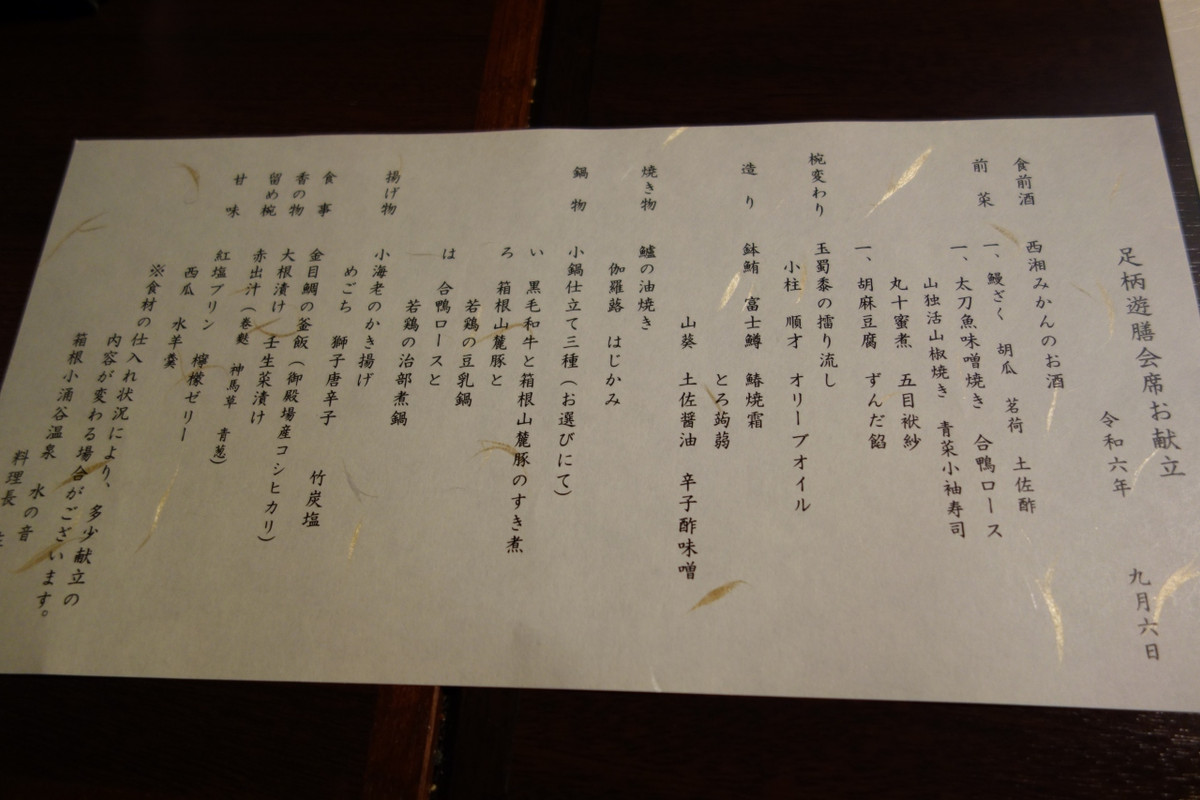 足柄遊膳会席お献立
令和六年 九月六日
食前酒 西湘みかんのお酒
前菜 一、鰻ざく 胡瓜 茗荷 土佐酢
一、太刀魚味噌焼き 合鴨ロース
山独活山椒焼き 青菜小袖寿司
丸十蜜煮 五目袱紗
一、胡麻豆腐 ずんだ餡
椀変わり 玉蜀黍の擂り流し
小柱 順才 オリーブオイル
造り 鉢鮪 富士鱒 鰆焼霜
とろ蒟蒻
山葵 土佐醤油 辛子酢味噌
焼き物 鱸の油焼き
伽羅蕗 はじかみ
鍋物 小鍋仕立て三種(お選びにて)
い 黒毛和牛と箱根山麓豚のすき煮
ろ 箱根山麓豚と
若鶏の豆乳鍋
は 合鴨ロースと
若鶏の治部煮鍋
揚げ物 小海老のかき揚げ
めごち 獅子唐辛子 竹炭塩
食事 金目鯛の釜飯(御殿場産コシヒカリ)
香の物 大根漬け 壬生菜漬け
留め椀 赤出汁(巻麩 神馬草 青葱)
甘味 紅塩プリン 檸檬ゼリー
西瓜 水羊羹
※食材の仕入れ状況により、多少献立の
内容が変わる場合がございます。
箱根小涌谷温泉 水の音
料理長